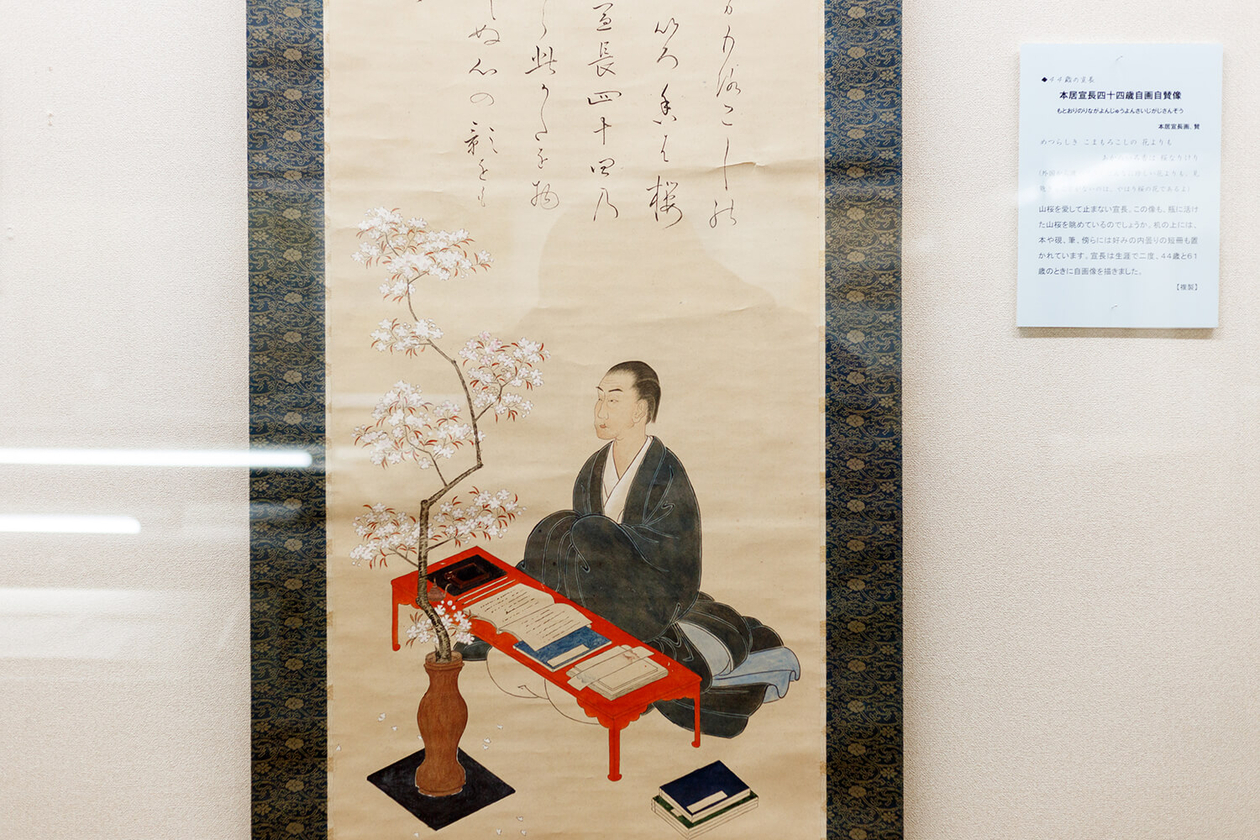 もろこしの
いろ香は桜
宣長四十四乃
此かたを物
ぬ心の影をも
本居宣長四十四歳自画自賛像
もとおりのりながよんじゅうよんさいじがじさんぞう
本居宣長画、賛
めつらしき こまもろこしの 花よりも
桜なりけり
やはり桜の花であるよ)
山桜を愛して止まない宣長。この像も、瓶に活け
た山桜を眺めているのでしょうか。机の上には、
本や硯、筆、傍らには好みの内曇りの短冊も置
かれています。宣長は生涯で二度、44歳と61
歳のときに自画像を描きました。
【複製】